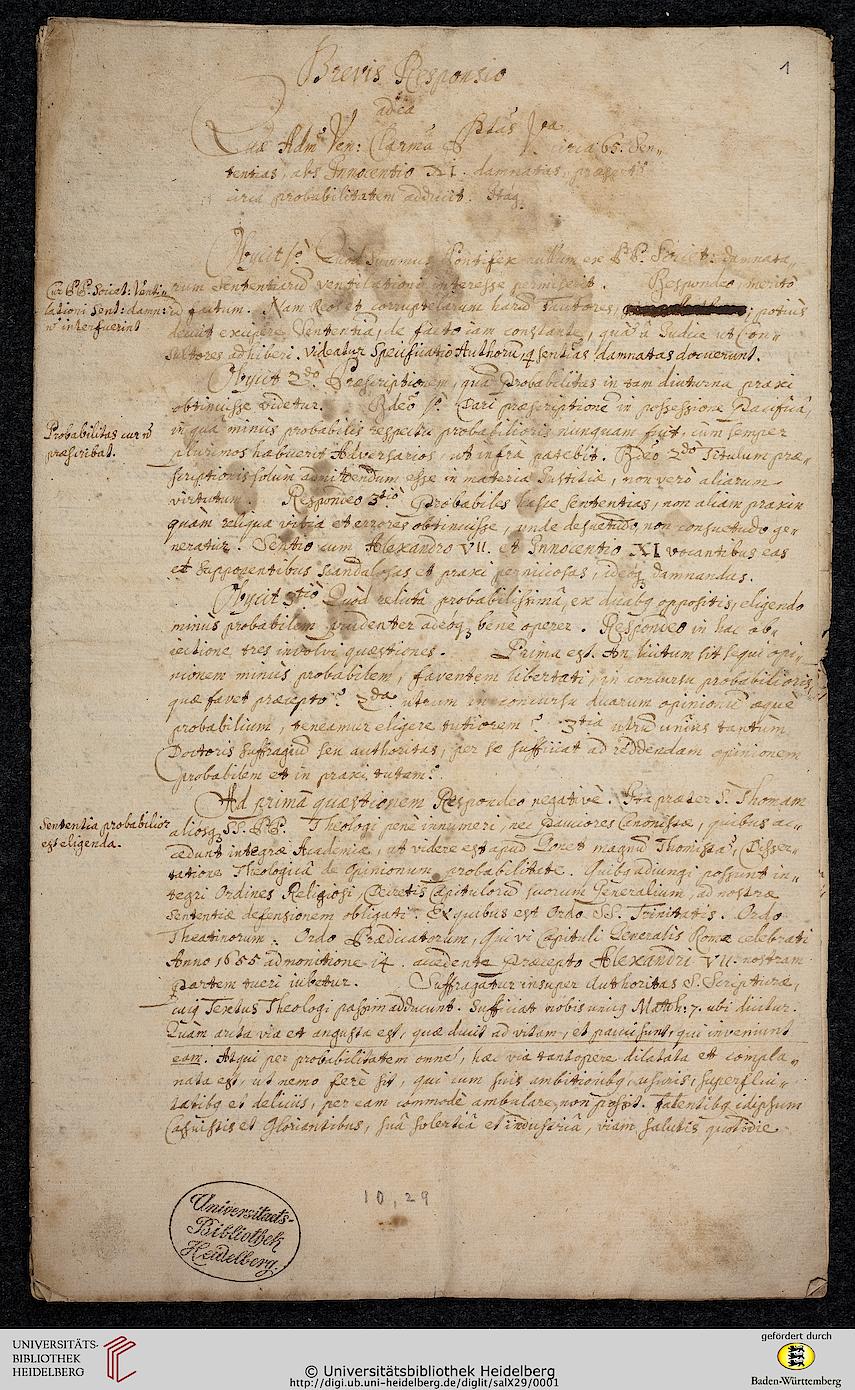 1
Brevis Responsio
ad ea
Quæ Adm: Ven: Clarma Ptas Vra circa 65. Sen„
tentias, abs Innocentio XI. damnatas,
circa probabilitatem adducit. Itaq
Obijcit 1o Quod Summus Pontifex nullum ex PP. Societ: damnata„
Cur PP. Societ: Venti„
lationi Sent: damn:
n interfuerint
rum Sententiarū ventilationi interesse permiserit. Respondeo, merito
id factum. Nam Reos et corruptelarum harū fautores, potius
decuit excipere Sententiā, de facto iam constante, quā a Iudice ut Con„
sultores adhiberi. Videatur Specificatio Authorū, q sentas damnatas docuerunt.
Obijcit 2do Præscriptionem, quā Probabilitas in tam diuturna praxi
obtinuisse videtur. Rdeo 1o. Dari præscriptionē in possessione Pacificâ,
Probabilitas cur n
præscribat.
in quâ minus probabilis respectu probabilioris nunquam fuit, cum semper
plurimos habuerit Adversarios, ut infra patebit. Rdeo 2do Titulum præ„
scriptionis solùm admittendum esse in materia Iustitiæ, non verò aliarum
virtutum. Respondeo 3tio Probabiles hasce sententias, non aliam praxin
quàm reliqua vitia et errores obtinuisse, unde desuetudo, non consuetudo ge„
neratur. Sentio cum Alexandro VII. et Innocentio XI vocantibus eas
et supponentibus scandalosas et praxi perniciosas, ideoq damnandas.
Obijcit 3tio Quòd relictâ probabilissimâ, ex duabq oppositis, eligendo
minus probabilem prudenter adeoq bene operer. Respondeo in hac ob„
iectione tres involvi quæstiones. Prima est. An licitum sit sequi opi„
nionem minùs probabilem, faventem libertati, in concursu probabilioris
quæ favet præcepto? 2da utrum in concursu duarum opinionū æquè
probabilium, teneamur eligere tutiorem? 3tia utrū unius tantùm
Doctoris suffragiū seu authoritas, per se sufficiat ad reddendam opinionem
probabilem et in praxi tutam?
Ad primā quæstionem Respondeo negativè. Ita præter S. Thomam
Sententia probabilior
est eligenda.
aliosq SS. PP. Theologi penè innumeri, nec pauciores Canonistæ, quibus ac„
cedunt integræ Academiæ, ut videre est apud Gonet magnū Thomistā, Disser„
tatione Theologicâ de Opinionum probabilitate. Quibq adiungi possunt in„
tegri Ordines Religiosi, Decretis Capitulorū suorum Generalium, ad nostræ
sententiæ defensionem obligati. Ex quibus est Ordo SS. Trinitatis. Ordo
Theatinorum. Ordo Prædicatorum, Qui vi Capituli Generalis Romæ celebrati
Anno 1655 admonitione 14. accedente Præcepto Alexandri VII. nostram
partem tueri iubetur. Suffragatur insuper Authoritas S. Scripturæ,
cuiq Textus Theologi passim adducunt. Sufficiat nobis unicq Matth: 7. ubi dicitur.
Quàm arcta via et angusta est, quæ ducit ad vitam, et pauci sunt, qui inveniunt
eam. Atqui per probabilitatem omnē, hæc via tantopere dilatata et compla„
nata est, ut nemo ferè sit, qui cum suis ambitionibq, usuris, superflui„
tatibq et deliciis, per eam commodè ambulare non possit. Fatentibq idipsum
Casuistis et Gloriantibus, suâ solertiâ et industriâ, viam salutis quotidie
10,29
Universitaets-
Bibliothek
Heidelberg.
UNIVERSITÄTS-
BIBLIOTHEK
HEIDELBERG
© Universitätsbibliothek Heidelberg
http://digi.ub.uni-heidelberg.de/diglit/salX29/0001
gefördert durch
Baden-Württemberg